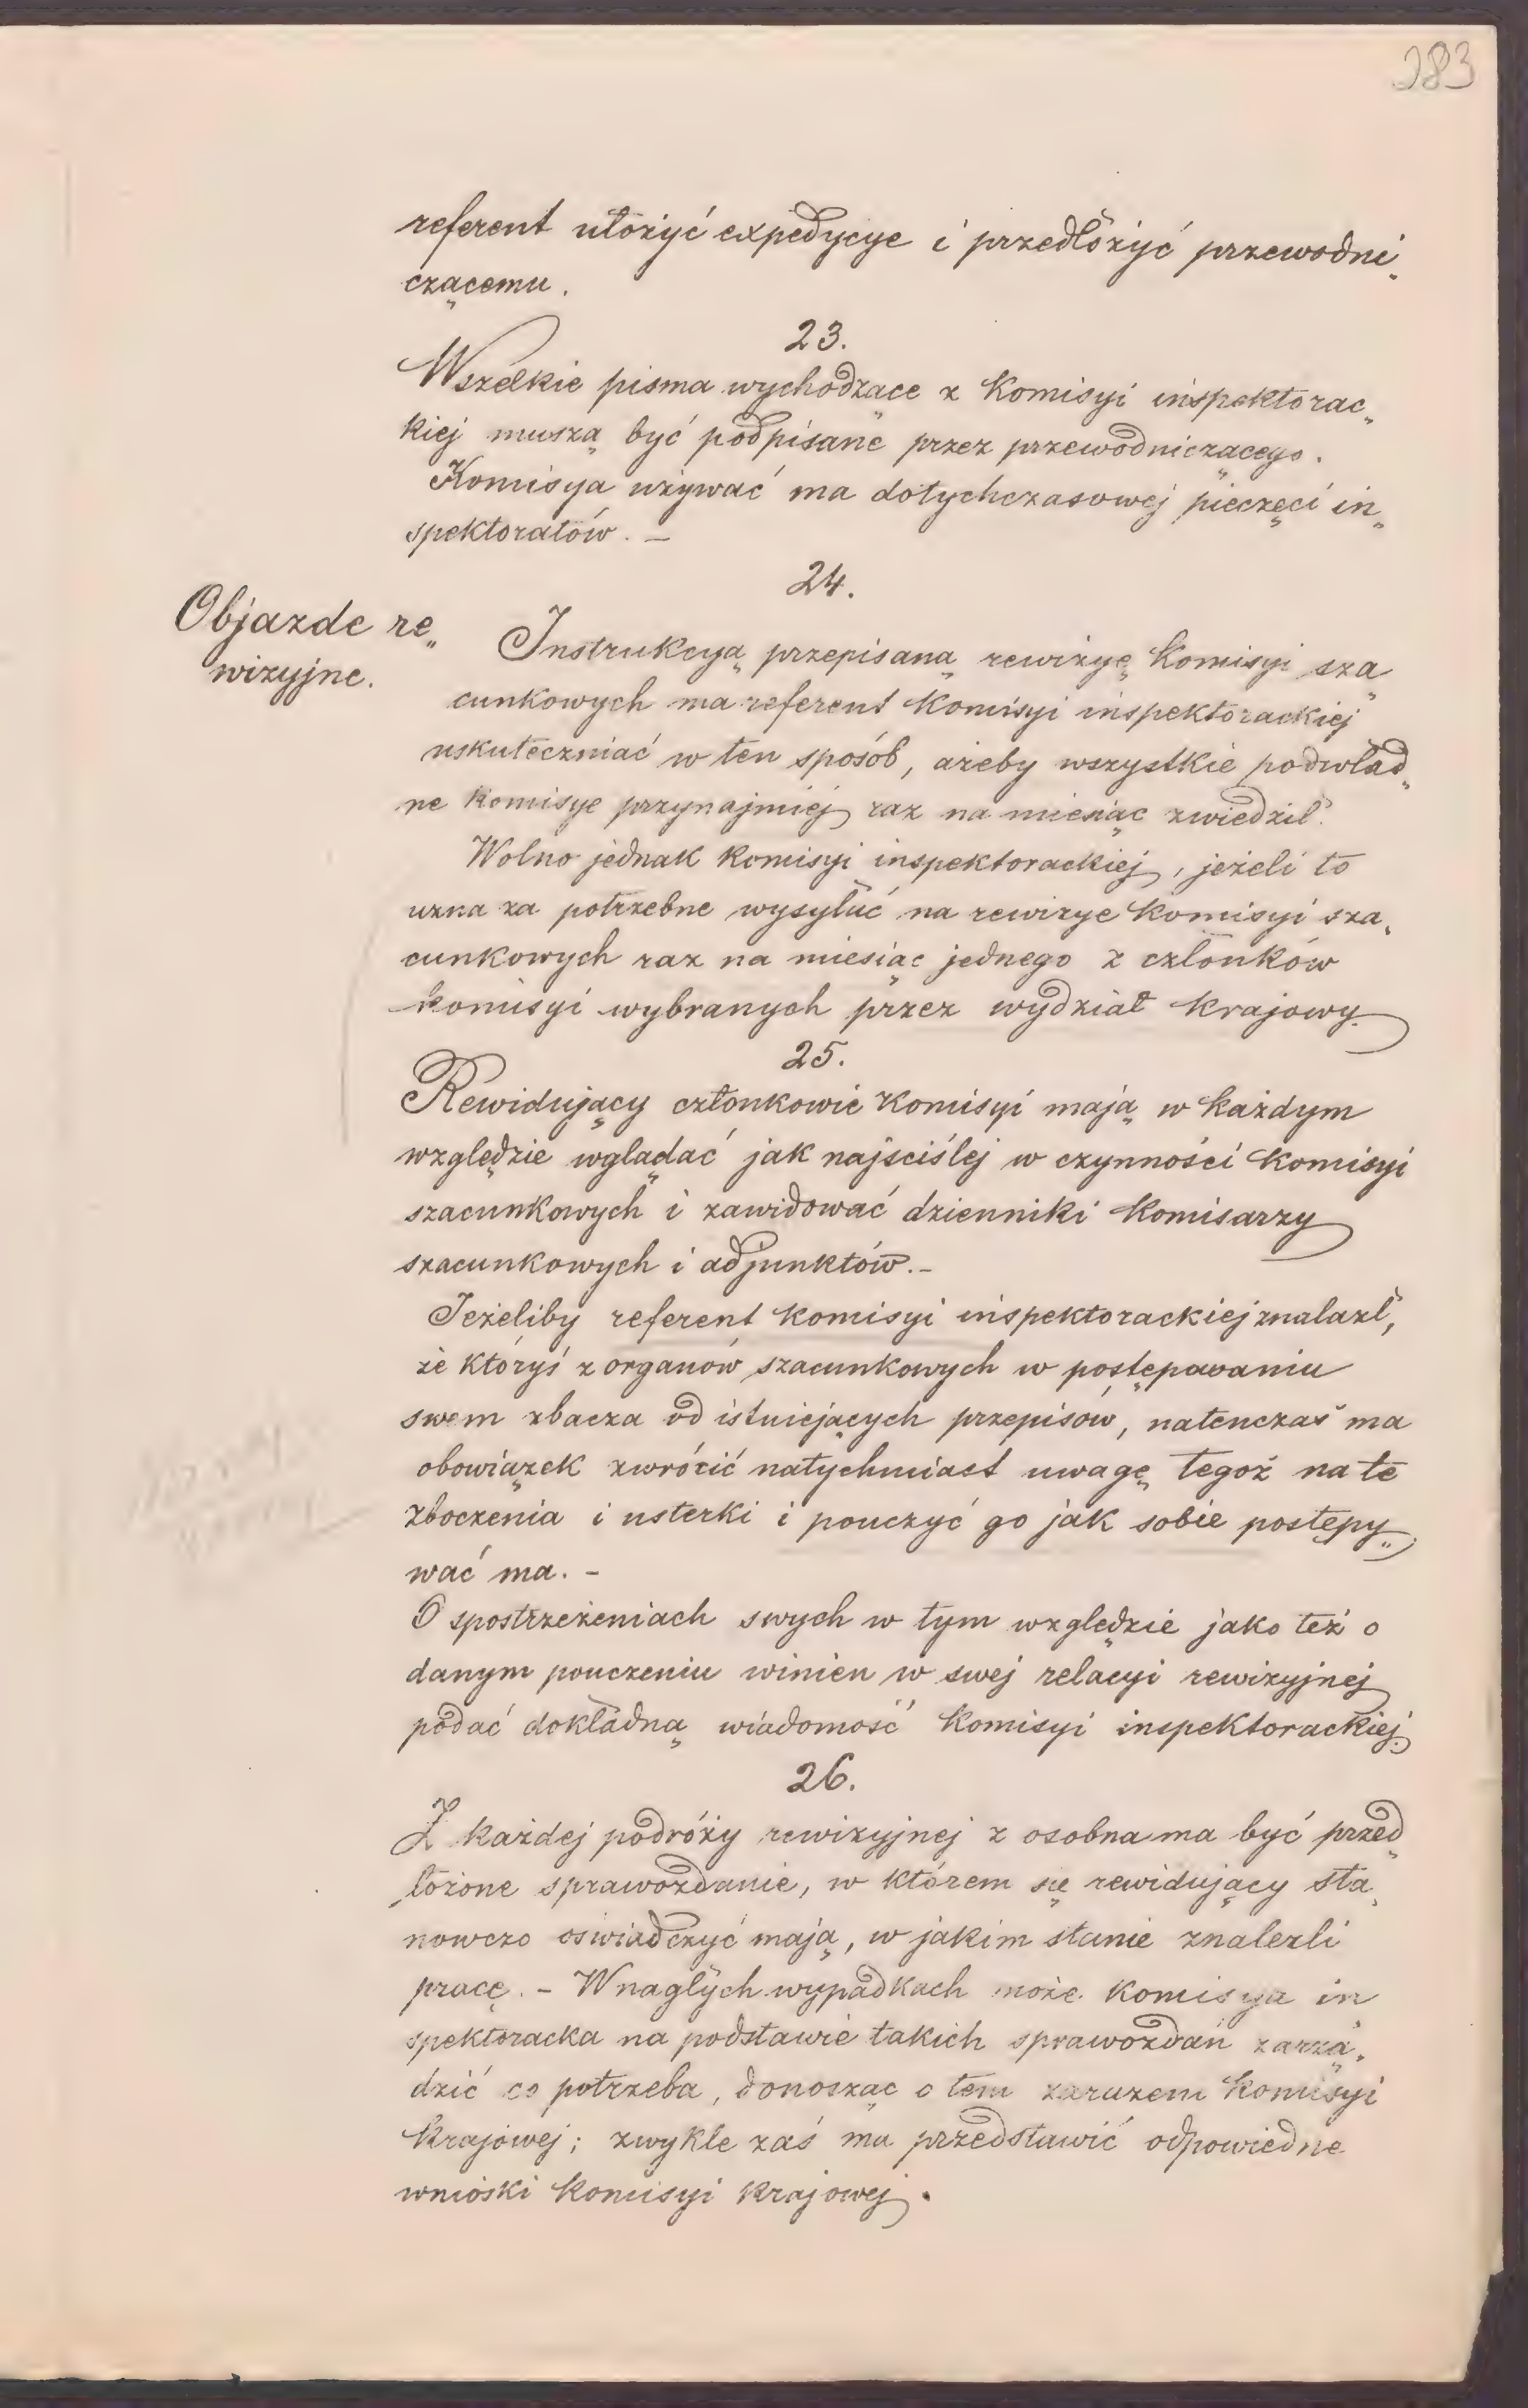 283
referent ułożyć expedycye i przedłożyć przewodni„
czącemu.
23.
Wszelkie pisma wychodzące z Komisyi inspektorac„
kiej muszą być podpisane przez przewodniczącego.
Komisya używać ma dotychczasowej pieczęci in„
spektoratów. —
24.
Objazde re„
wizyjne.
Instrukcyą przepisaną rewizyę Komisyi sza„
cunkowych ma referent Komisyi inspektorackiej
uskuteczniać w ten sposób, ażeby wszystkie podwład„
ne Komisye przynajmiej raz na miesiąc zwiedził.
Wolno jednak Komisyi inspektorackiej, jeżeli to
uzna za potrzebne wysyłać na rewizye Komisyi sza„
cunkowych raz na miesiąc jednego z członków
komisyi wybranych przez wydział krajowy.
25.
Rewidujący członkowie Komisyi mają w każdym
względzie wglądać jak najściślej w czynności Komisyi
szacunkowych i zawidować dzienniki Komisarzy
szacunkowych i adjunktów. -
Jeżeliby referent Komisyi inspektorackiej znalazł,
że któryś z organów szacunkowych w postępowaniu
swem zbacza od istniejących przepisów, natenczas ma
obowiązek zwrócić natychmiast uwagę tegoż na te
zboczenia i usterki i pouczyć go jak sobie postępy„
wać ma. -
O spostrzeżeniach swych w tym względzie jako też o
danym pouczeniu winien w swej relacyi rewizyjnej
podać dokładną wiadomość Komisyi inspektorackiej.
26.
Z każdej podróży rewizyjnej z osobna ma być przed„
łożone sprawozdanie, w którem się rewidujący sta„
nowczo oświadczyć mają, w jakim stanie znaleźli
pracę. - W nagłych wypadkach może Komisya in
spektoracka na podstawie takich sprawozdań zarzą„
dzić co potrzeba, donosząc o tem zarazem Komisyi
Krajowej; zwykle zaś ma przedstawić odpowiedne
wnioski Komisyi Krajowej.